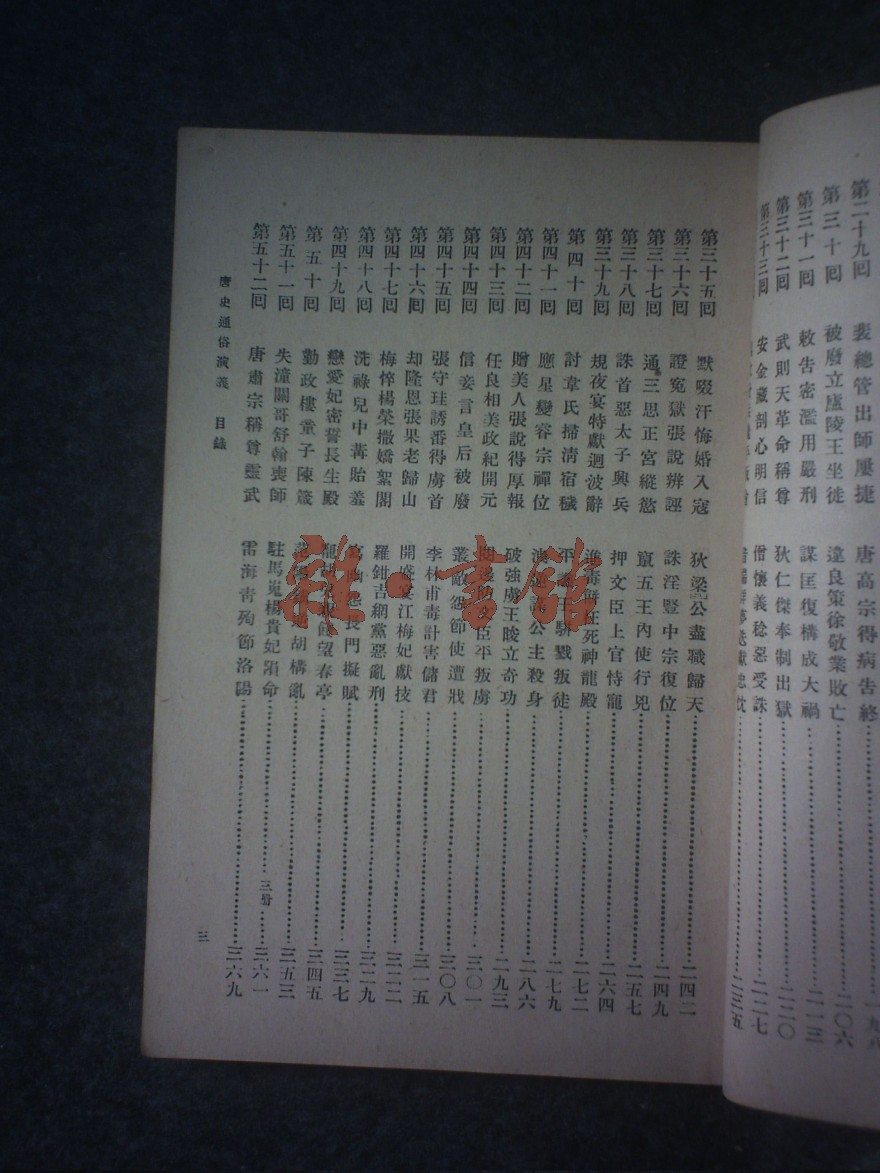 第二十九回 裴總管出師屢捷 唐高宗得病告終
第三十回 被廢立廬陵王坐徙 違良策徐敬業敗亡 二〇六
第三十一回 敕告密濫用嚴刑 謀匡復構成大禍 二一三
第三十二回 武則天革命稱尊 狄仁傑奉制出獄 二二〇
第三十三回 安金藏剖心明信 僧懷義稔惡受誅 二二七
二三五
第三十五回 默啜汗悔婚入寇 狄梁公盡職歸天 二四二
第三十六回 證冤獄張說辨誣 誅淫豎中宗復位 二四九
第三十七回 通三思正宮縱慾 竄五王內使行兇 二五七
第三十八回 誅首惡太子興兵 押文臣上官恃寵 二六四
第三十九回 規夜宴特獻迴波辭 死神龍殿 二七二
第四十回 討韋氏掃清宿穢 平 王駢戮叛徒 二七九
第四十一回 應星變睿宗禪位 公主殺身 二八六
第四十二回 贈美人張說得厚報 破強虜王晙立奇功 二九三
第四十三回 任良相美政紀開元 臣平叛虜 三〇一
第四十四回 信妾言皇后被廢 叢敵怨節使遭戕 三〇八
第四十五回 張守珪誘番得虜首 李林甫毒計害儲君 三一五
第四十六回 却隆恩張果老歸山 開盛宴江梅妃獻技 三二二
第四十七回 梅悴楊榮撒嬌絮閣 羅鉗吉網黨惡亂刑 三二九
第四十八回 洗祿兒中冓貽羞 長門擬賦 三三七
第四十九回 戀愛妃密誓長生殿 望春亭 三四五
第五十回 勤政樓童子陳箴 胡構亂 三五三
第五十一回 失潼關哥舒翰喪師 駐馬嵬楊貴妃隕命 三册 三六一
第五十二回 唐肅宗稱尊靈武 雷海青殉節洛陽 三六九
唐史通俗演義 目錄 三
雜·書館